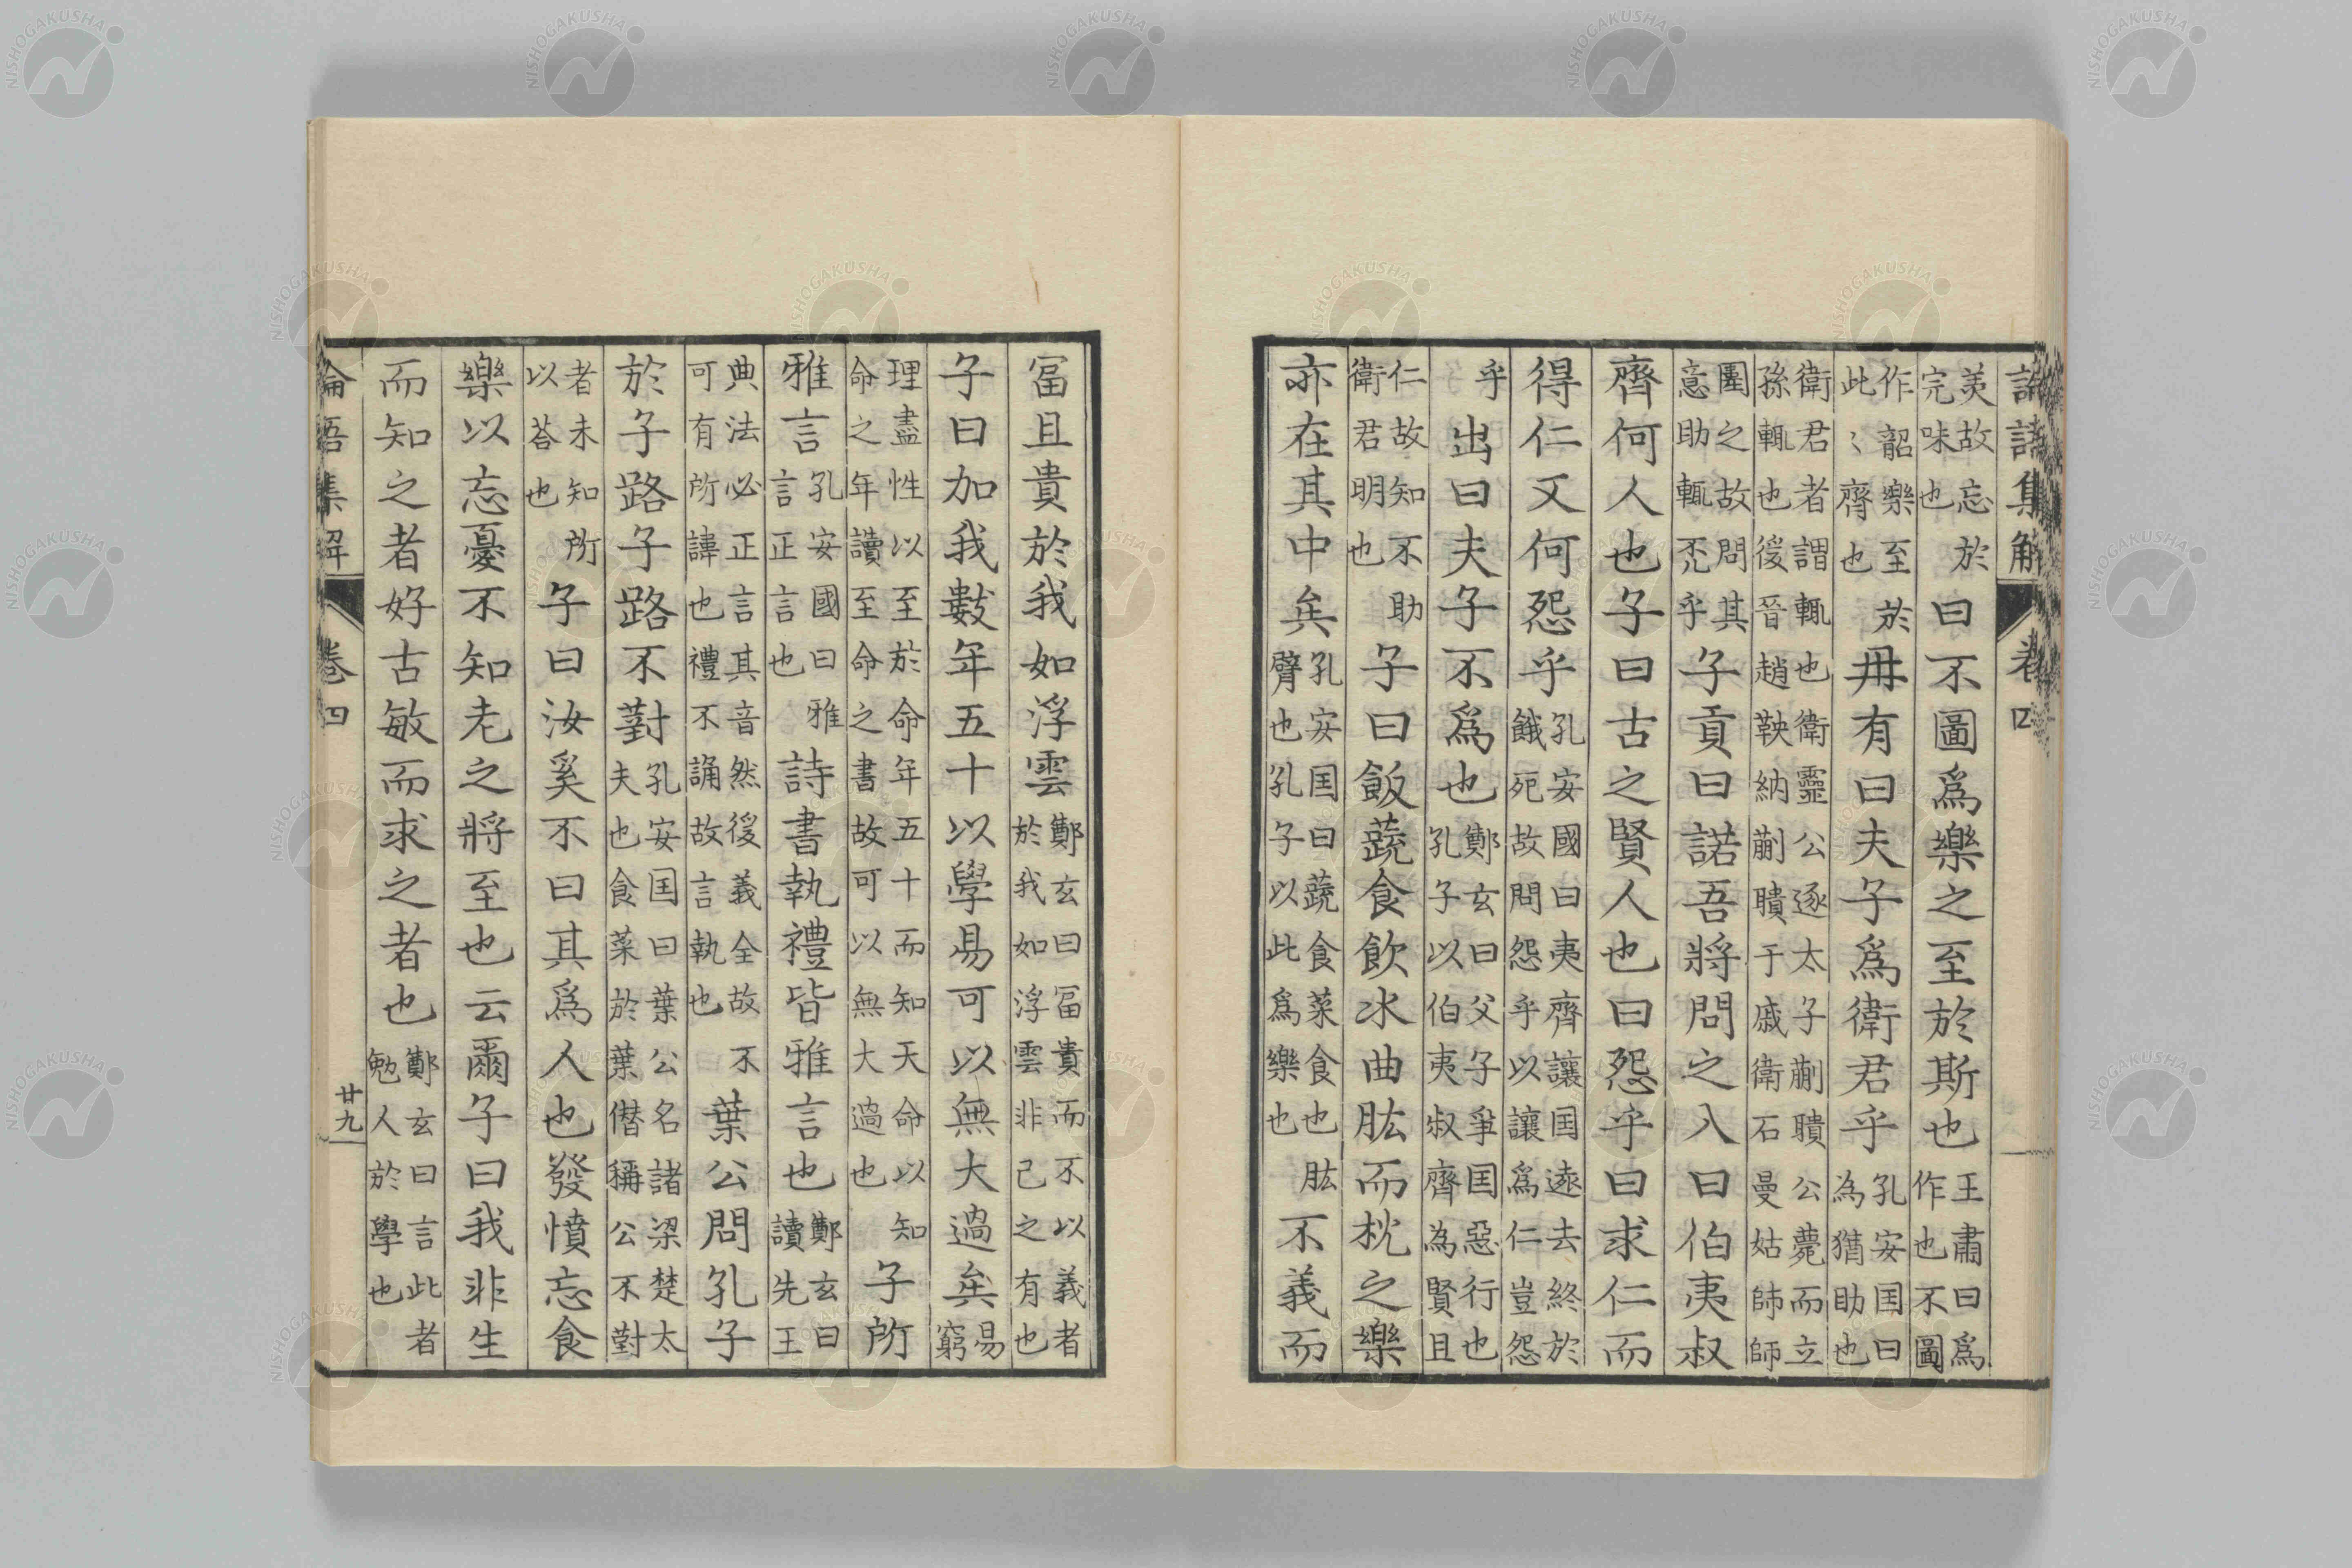 論語集解 卷四
羙故忘於完味也曰不圖爲樂之至於斯也王肅曰爲作也不圖
作韶樂至於此〻齊也冉有曰夫子爲衛君乎孔安囯曰為猶助也
衛君者謂輒也衛靈公逐太子蒯聵公薨而立孫輒也後晉趙鞅納蒯聵于戚衛石曼姑師師
圍之故問其意助輒不乎子貢曰諾吾將問之入曰伯夷叔
齊何人也子曰古之賢人也曰怨乎曰求仁而
得仁又何怨乎孔安國曰夷齊讓囯遠去終於餓死故問怨乎以讓爲仁豈怨
乎出曰夫子不爲也鄭玄曰父子爭囯惡行也孔子以伯夷叔齊為賢且
仁故知不助衛君明也子曰飯蔬食飲水曲肱而枕之樂
亦在其中矣孔安囯曰蔬食菜食也肱臂也孔子以此爲樂也不義而
冨且貴於我如浮雲鄭玄曰冨貴而不以義者於我如浮雲非己之有也
子曰加我數年五十以學易可以無大過矣易窮
理盡性以至於命年五十而知天命以知命之年讀至命之書故可以無大過也子所
雅言孔安國曰雅言正言也詩書執禮皆雅言也鄭玄曰讀先王
典法必正言其音然後義全故不可有所諱也禮不誦故言執也葉公問孔子
於子路子路不對孔安囯曰葉公名諸梁楚太夫也食菜於葉僣稱公不對
者未知所以荅也子曰汝奚不曰其爲人也發憤忘食
樂以忘憂不知老之將至也云爾子曰我非生
而知之者好古敏而求之者也鄭玄曰言此者勉人於學也
論語集解 卷四 廿九
NISHOGAKUSHA